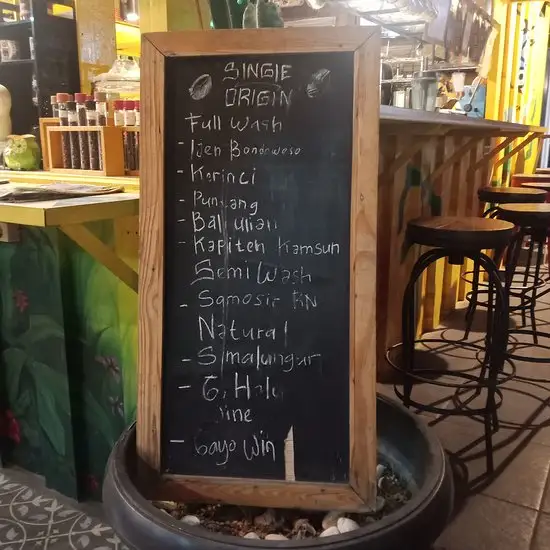 SINGLE
ORIGIN
Full Wash
- Ijen Bondowoso
- Korinci
- Puntang
- Bali ulian
- Kapiten Kamsun
Semi Wash
- Samosir RN
Natural
- Simalungun
- G, Halu
Wine
- Gayo Win